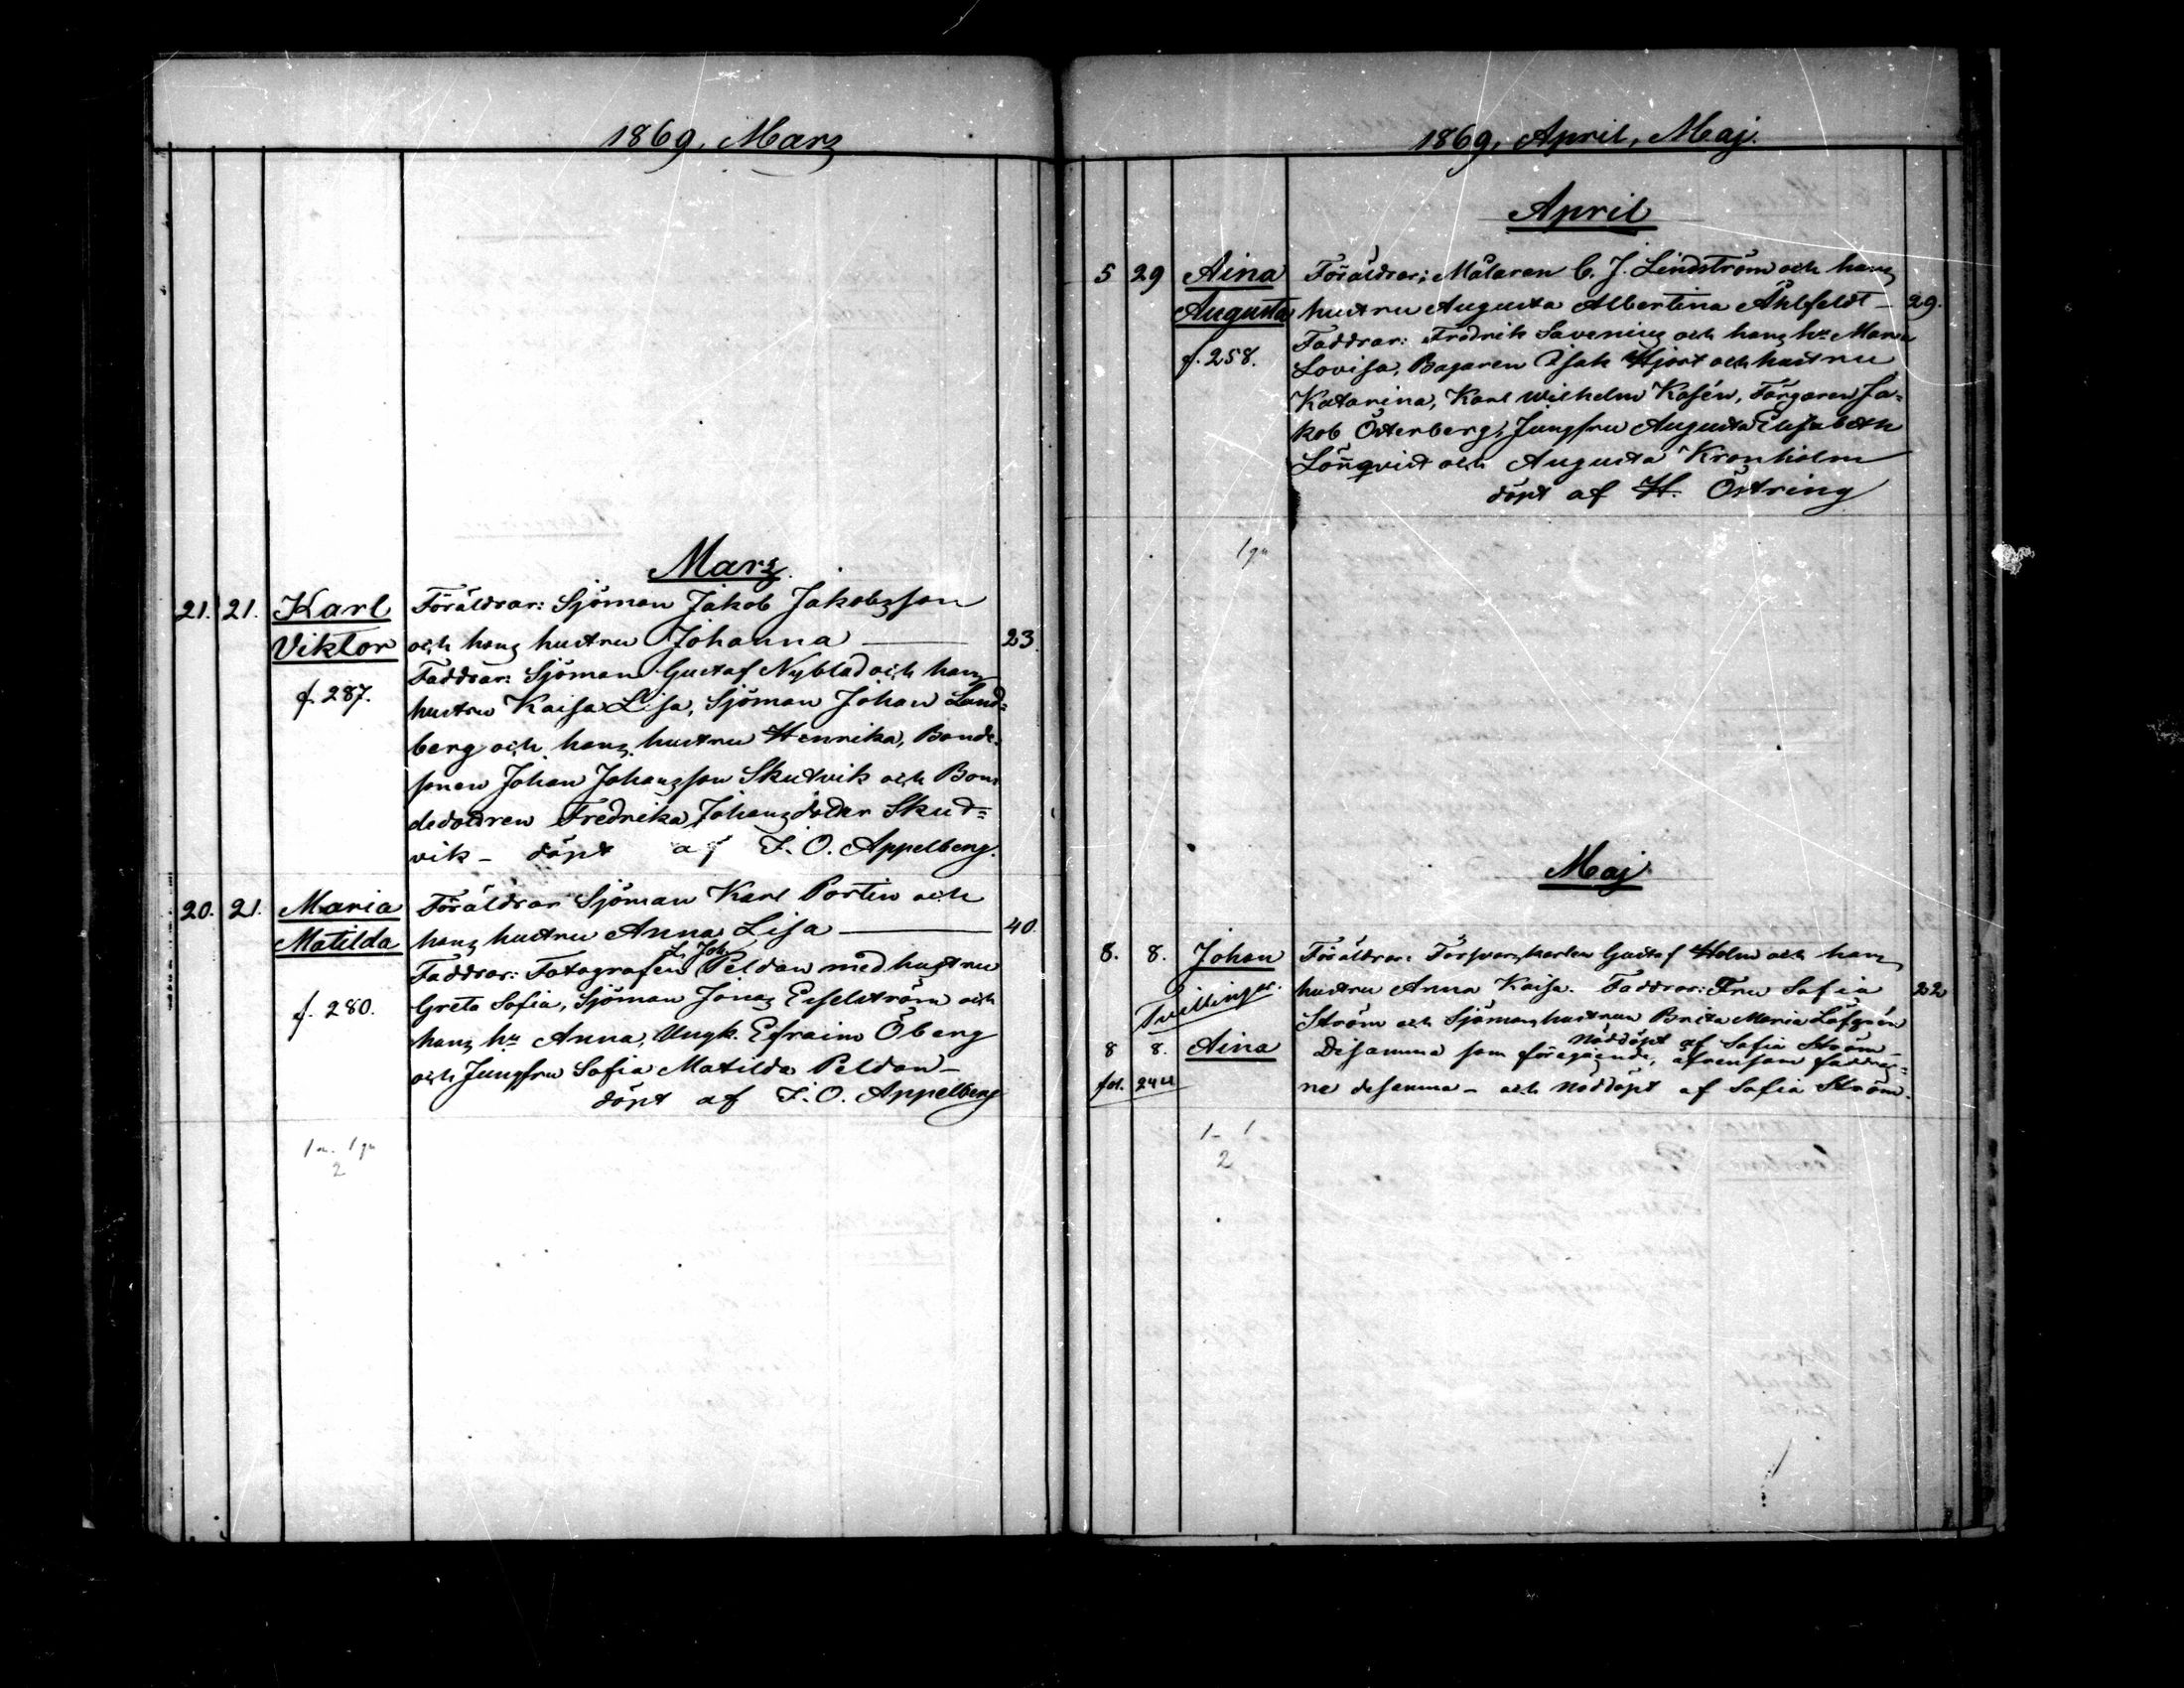 1869. Marz
Marz.
21. 21. Karl Föräldrar: Sjöman Jakob Jakobsson
Viktor och hans hustru Johanna — 23.
Faddrar: Sjöman Gustaf Nyblad och hans
f. 287. hustru Kaisa Lisa, Sjöman Johan Sand=
berg och hans hustru Henrika, Bonde=
sonen Johan Johansson Skutvik och Bon=
dedottren Fredrika Johansdotter Skut=
vik – döpt af F. O. Appelberg.
20. 21. Maria Föräldrar Sjöman Karl Portin och
Matilda hans hustru Anna Lisa — 40.
Faddrar: Fotografen Peldan med hustru
f. 280. Greta Sofia, Sjöman Jonas och
hans hu Anna, Ungk. Efraim Öberg
och Jungfru Sofia Matilda Peldan –
döpt af F. O. Appelberg
2
1869, April, Maj.
April
5 29 Aina Föräldrar: Målaren C. J. Lindström och hans
Augusta hustru Augusta Albertina Åhlfeldt – 29.
Faddrar: Fredrik Savenius och hans hu Maria
f. 258. Lovisa, Bagaren Isak Hjort och hustru
Katarina, Karl Wilhelm Kasén, Färgaren Ja=
kob Österberg, Jungfru Augusta Elisabeth
Lönnqvist och Augusta Kronholm
döpt af H. Östring
Maj
8. 8. Johan Föräldrar: Gustaf Holm och hans
Tvillingar. hustru Anna Kaisa. Faddrar: Fru Sofia 22
Ström och Sjömanshustrun Brita Maria Löfgrén
Nöddöpt af Sofia Ström –
8 8. Aina Desamma som föregående, äfvensom faddrar=
fol. 244 ne desamma – och nöddöpt af Sofia Ström.
1 – 1
2